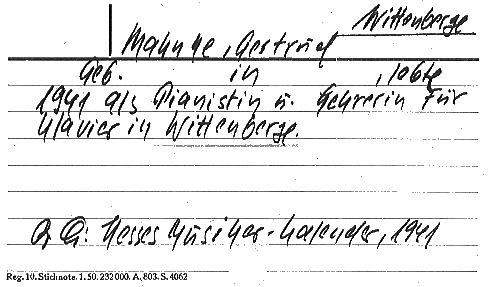 Wittenberge
Mahnke, Gertrud
Geb. in , lebte
1941 als Pianistin u. Lehrerin für
Klavier in Wittenberge.
Q Q: Hesses Musiker-Kalender, 1941
Reg. 10. Stichnote. 1. 50. 232000. A. 803. S. 4062